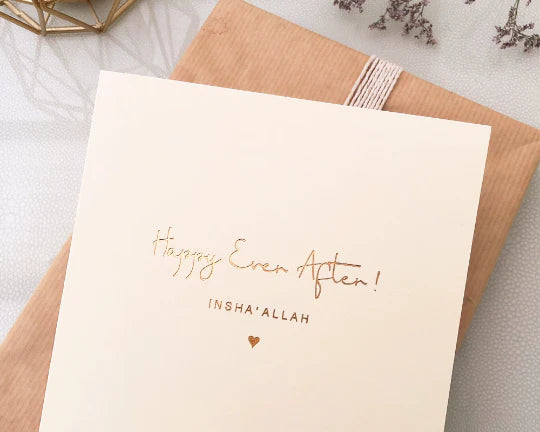 Happy Ever After!
INSHA'ALLAH